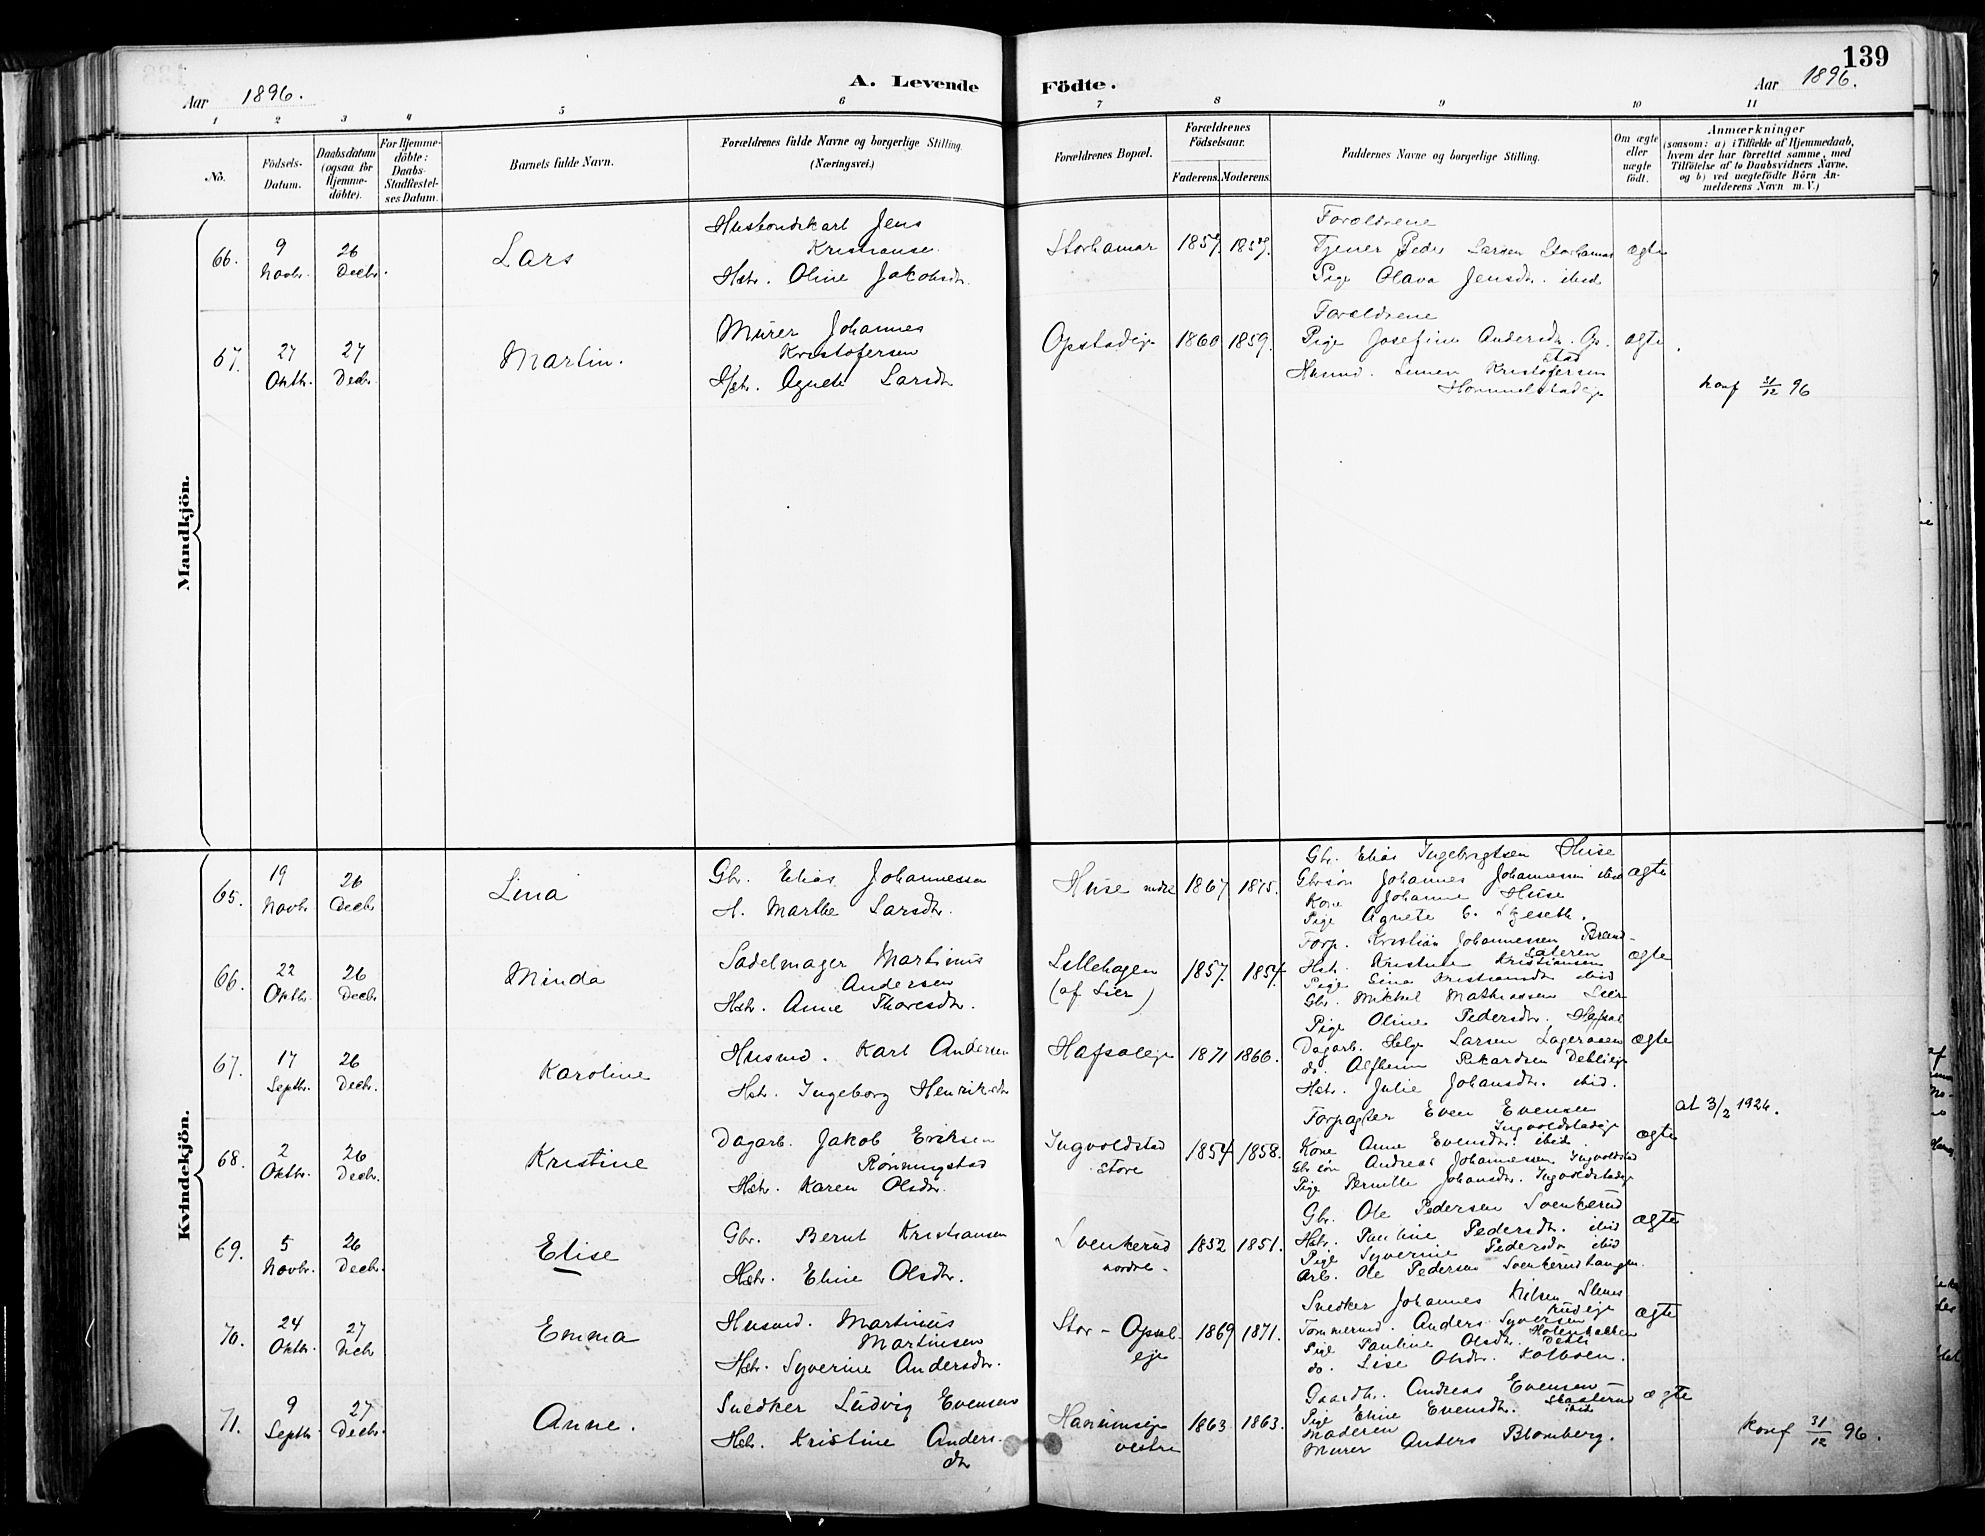 139
Aar 1896.
A. Levende Födte.
Aar 1896.
1 2 3 4 5 6 7 8 9 10 11
No.
Födsels-Datum.
Daabsdatum (ogsaa för Hjemme-döbte).
For Hjemme-döbte: Daabs-Stadfæstel-ses Datum.
Barnets fulde Navn.
Forældrenes fulde Navne og borgerlige Stilling. (Næringsvei.)
Forældrenes Bopæl.
Forældrenes Födselsaar.
Faderens. Moderens.
Faddernes Navne og borgerlige Stilling.
Om ægte eller uægte födt.
Anmærkninger
(saasom: a) i Tilfælde af Hjemmedaab,
hvem der har forrettet samme, med
Tilföielse af to Daabsvidners Navne,
og b) ved uægtefödte Börn An-
melderens Navn m. V.)
Mandkjön.
66.
9 Novbr.
26 Decbr.
Lars
Husbondskarl Jens
Kristiansen
Hstr. Oline Jakobsdr.
Storhamar
1859. 1859.
Forældrene
Tjener Peder Larsen Storhamar
Pige Olava Jensdr. ibid
ægte
67.
27 Oktbr.
27 Decbr.
Martin.
Murer Johannes
Kristofersen
Hstr. Agnete Larsdr
Opstadeje
1860 1859.
Forældrene
Pige Josefine Andersdr. Op-
stad
Husmd. Simen Kristofersen
Hommelstadeje
ægte
konf 31/12 96
Kvindekjön.
65.
19 Novbr.
26 Decbr
Lina
Gbr. Elias Johannessen
H. Marthe Larsdr.
Huse nedre
1867 1875.
Gbr. Elias Ingebrigtsen Huse
Gbrsön Johannes Johannessen ibid
Kone Johanne Huse
Pige Agnete
ægte
66.
22 Oktbr.
26 Decbr
Minda
Sadelmager Martinus
Andersen
Hstr. Anne Thoresdr.
Lillehagen
(af Lier)
1857. 1854.
Forp. Kristian Johannessen Brænd-
sæteren
Hstr. Kristine Kristiansen
Pige Lina Kristiansdr ibid
Gbr. Mikkel Mathiassen Lier
ægte
67.
17 Septbr.
26 Decbr.
Karoline
Husmd. Karl Andersen
Hstr. Ingeborg Henriksdr
Hafsaleje
1871 1866.
Pige Oline Pedersdr. Hafsal
Dagarb. Helge Larsen
do. Alfheim Rikardsen Dehlieje
Hstr. Julie Johansdr. ibid.
ægte
68.
2 Oktbr.
26 Decbr.
Kristine
Dagarb. Jakob Eriksen
Rönningstad
Hstr. Karen Olsdr.
Ingvoldstad
store
1854 1858.
Forpagter Even Evensen
Ingvoldstadeje
Kone Anne Evensdr. ibid
Gbrsön Andreas Johannessen Ingvoldstad
Pige Pernille Johansdr. Ingvoldstadeje
ægte
at 3/2 1926.
69.
5 Novbr.
26 Decbr.
Elise
Gbr. Bernt Kristiansen
Hstr. Eline Olsdr.
Svenkerud
nordre.
1852 1851.
Gbr. Ole Pedersen Svenkerud
Hstr. Pauline Pedersdr. ibid
Pige Syverine Pedersdr ibid
Arb. Ole Pedersen Svenkerudhaugen.
ægte
70.
24 Oktbr.
27 Decbr
Emma
Husmd. Martinus
Martinsen
Hstr. Syverine Andersdr.
Stor-Opsal-
eje
1869 1871.
Snedker Johannes Nilsen Slemsrudeje
Tömmermd. Anders Syversen
Pige Pauline Olsdr.
do. Lise Olsdr. Kolboen.
ægte
71.
9 Septbr.
27 Decbr.
Anne.
Snedker Ludvig Evensen
Hstr. Kristine Anders-
dr
vestre
1863 1863.
Gaardbr. Andreas Evensen
Pige Eline Evensdr. ibid
Moderen
Murer Anders Blomberg.
ægte
konf 31/12 96.